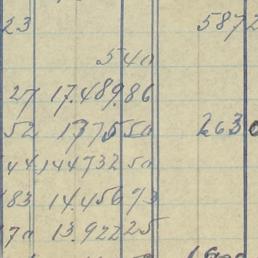 23 5872
540
27 17.489.86
52 137550 2630
44 144732 50
83 14.456 73
70 13.922 25